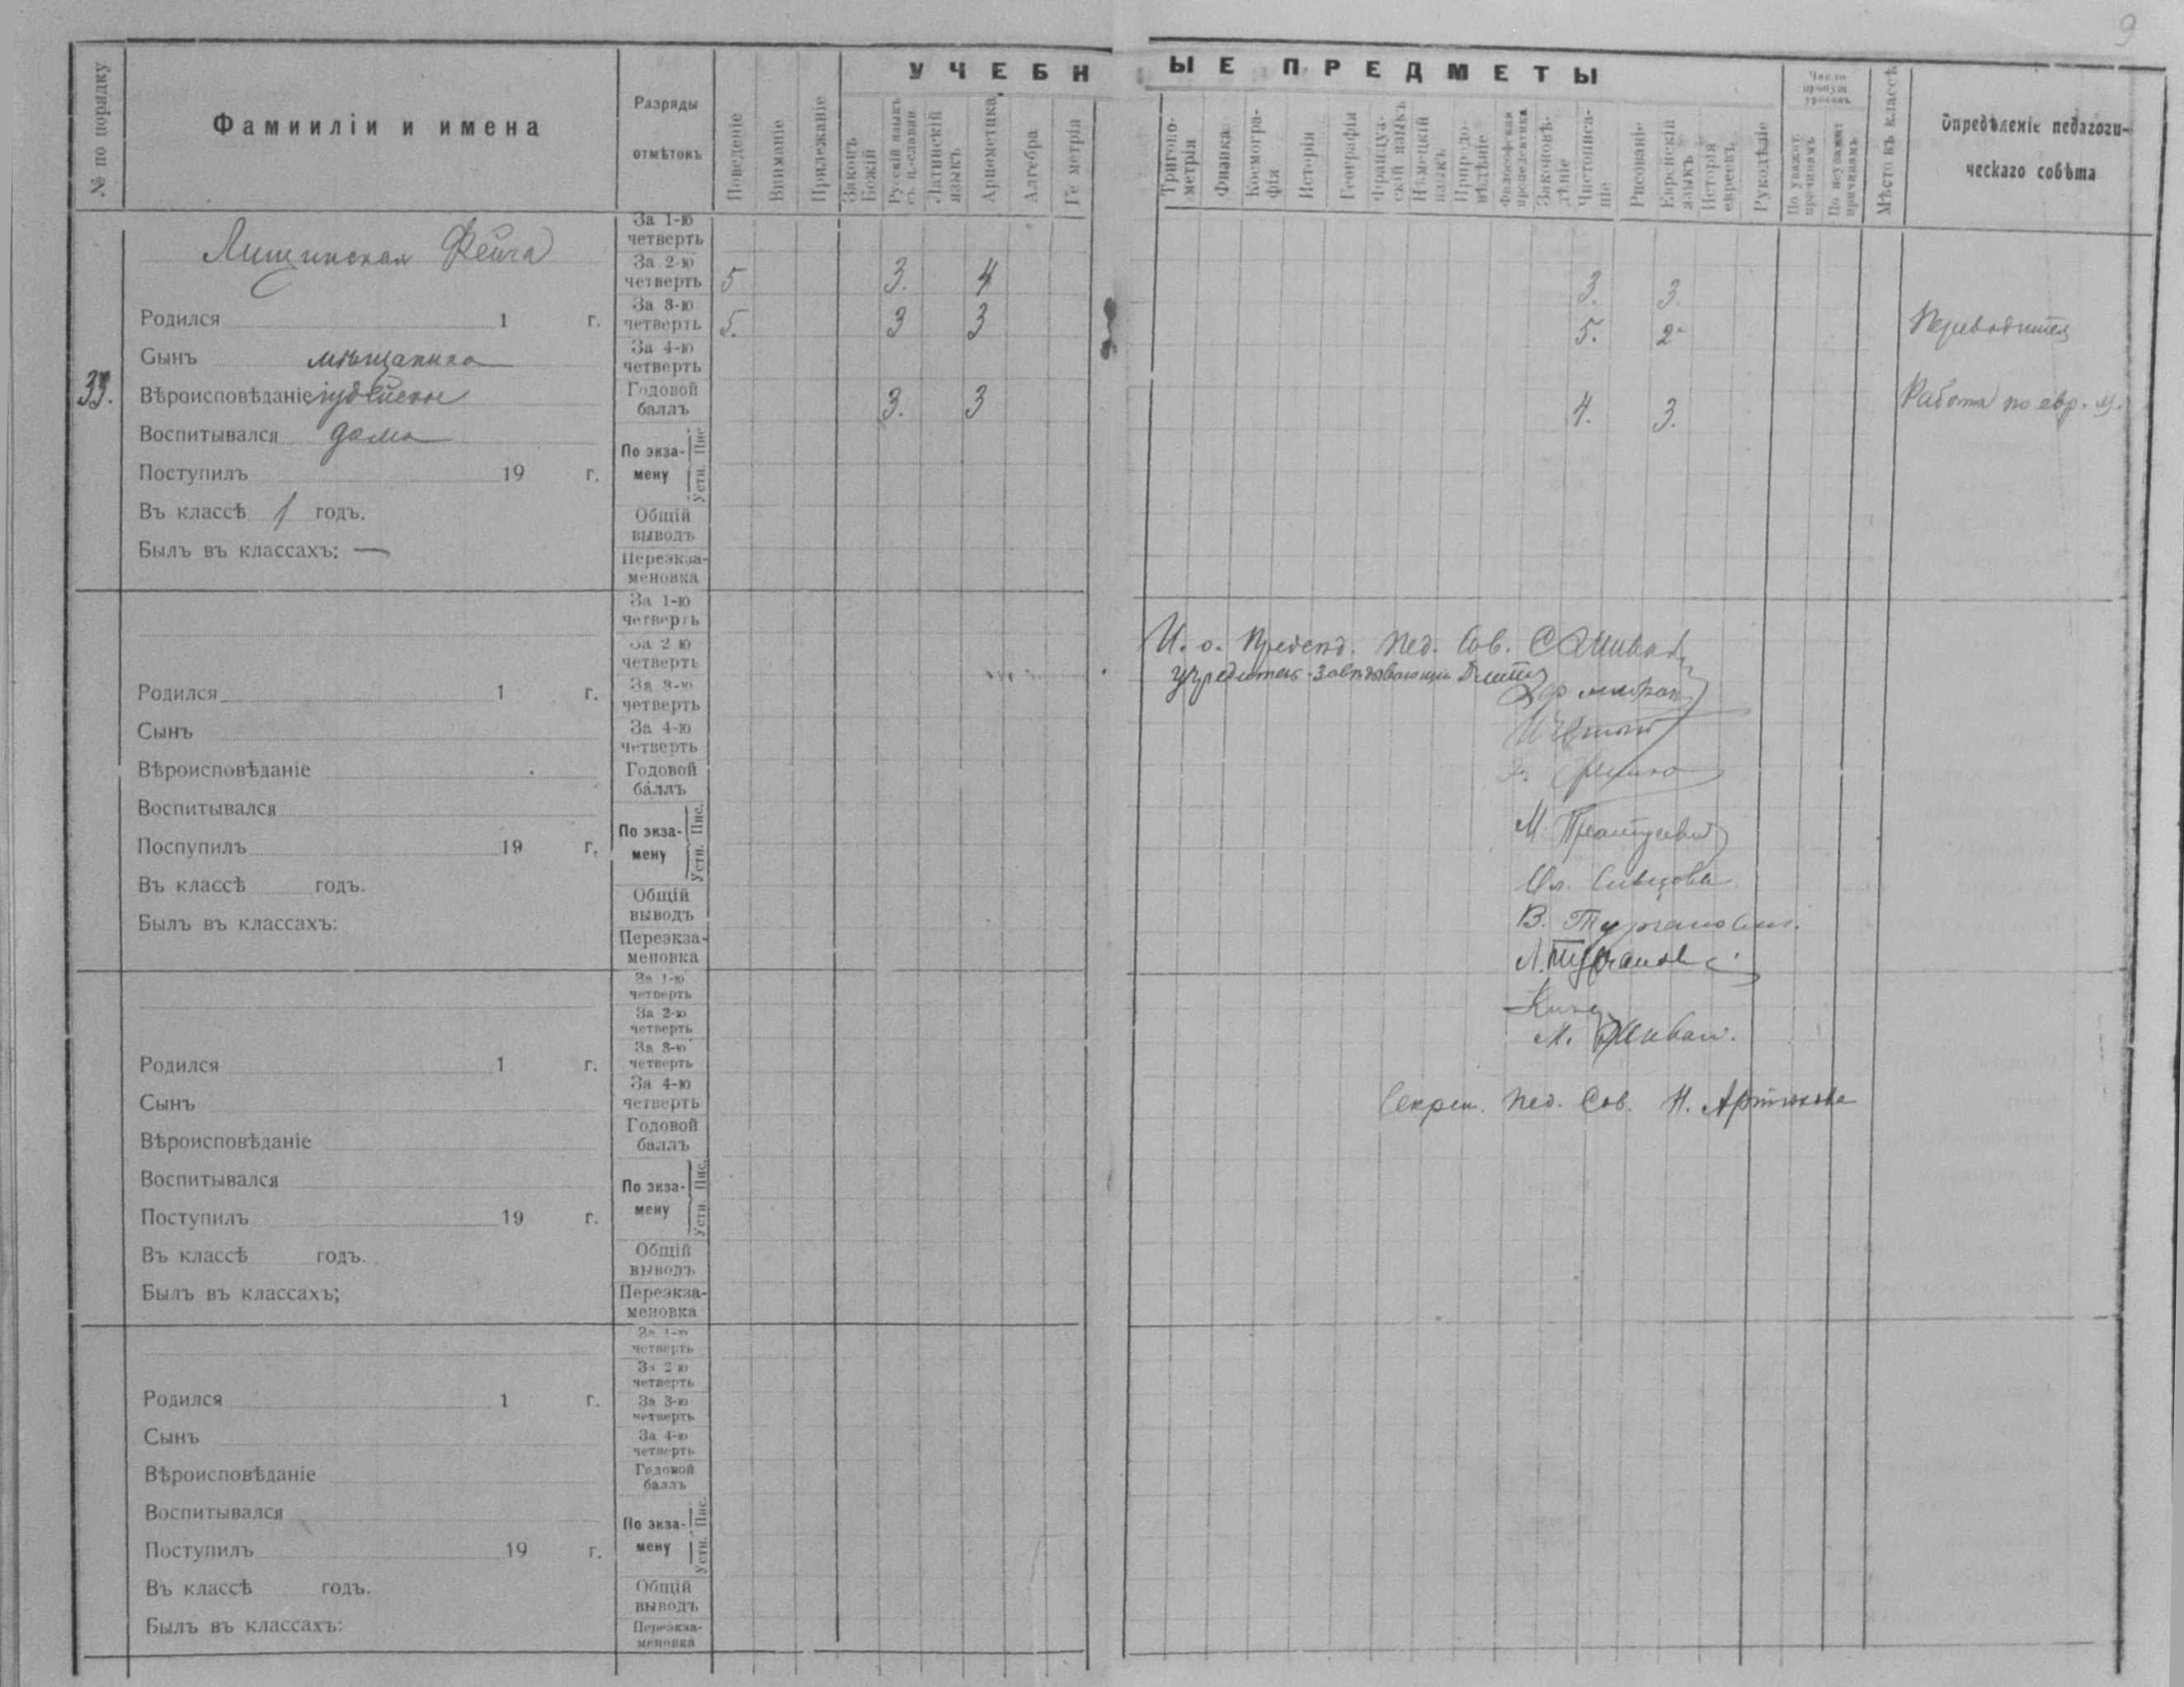 9
УЧЕБНЫЕ ПРЕДМЕТЫ
№ по порядку
Фамииліи и имена
Разряды отмѣтокъ
Поведеніе
Вниманіе
Прилежаніе
Законъ Божій
Русскій языкъ съ ц.-славян.
Латинскій языкъ
Ариѳметика
Алгебра
Ге метрія
Тригоно-метрія
Физика
Космогра-фія
Исторія
Географія
Француз-скій языкъ
Нѣмецкій языкъ
Природо-вѣдѣніе
Философская пропедевтика
Законовѣ-дѣніе
Чистописа-ніе
Рисованіе
Еврейскій языкъ
Исторія евреевъ
Рукодѣліе
Число пропущ. уроковъ
По уважит. причинамъ
По неуважит. причинамъ
Мѣсто въ классѣ
Опредѣленіе педагоги-
ческаго совѣта
33.
Лищинская Фейга
Родился 1 г.
Сынъ мѣщанина
Вѣроисповѣданіе іудейское
Воспитывался дома
Поступилъ 19 г.
Въ классѣ 1 годъ.
Былъ въ классахъ: —
За 1-ю четверть
За 2-ю четверть 5 3. 4 3. 3
За 3-ю четверть 5. 3 3 5. 2-
Переводится
За 4-ю четверть
Годовой баллъ 3. 3 4. 3.
Работа по евр. я.
По экза-мену Устн. Пис.
Общій выводъ
Переэкза-меновка
Родился 1 г.
Сынъ
Вѣроисповѣданіе
Воспитывался
Поспупилъ 19 г.
Въ классѣ годъ.
Былъ въ классахъ:
За 1-ю четверть
За 2 ю четверть
За 3-ю четверть
За 4-ю четверть
Годовой баллъ
По экза-мену Устн. Пис.
Общій выводъ
Переэкза-меновка
И. о. Предсѣд. Пед. Сов.
Учредитель-Завѣдывающій
М.
Ол.
В.
Л.
М.
Секрет. Пед. Сов. Н. Артюхова
Родился 1 г.
Сынъ
Вѣроисповѣданіе
Воспитывался
Поступилъ 19 г.
Въ классѣ годъ.
Былъ въ классахъ;
За 1-ю четверть
За 2-ю четверть
За 3-ю четверть
За 4-ю четверть
Годовой баллъ
По экза-мену Устн. Пис.
Общій выводъ
Переэкза-меновка
Родился 1 г.
Сынъ
Вѣроисповѣданіе
Воспитывался
Поступилъ 19 г.
Въ классѣ годъ.
Былъ въ классахъ:
За 1-ю четверть
За 2 ю четверть
За 3-ю четверть
За 4-ю четверть
Годовой баллъ
По экза-мену Устн. Пис.
Общій выводъ
Переэкза-меновка